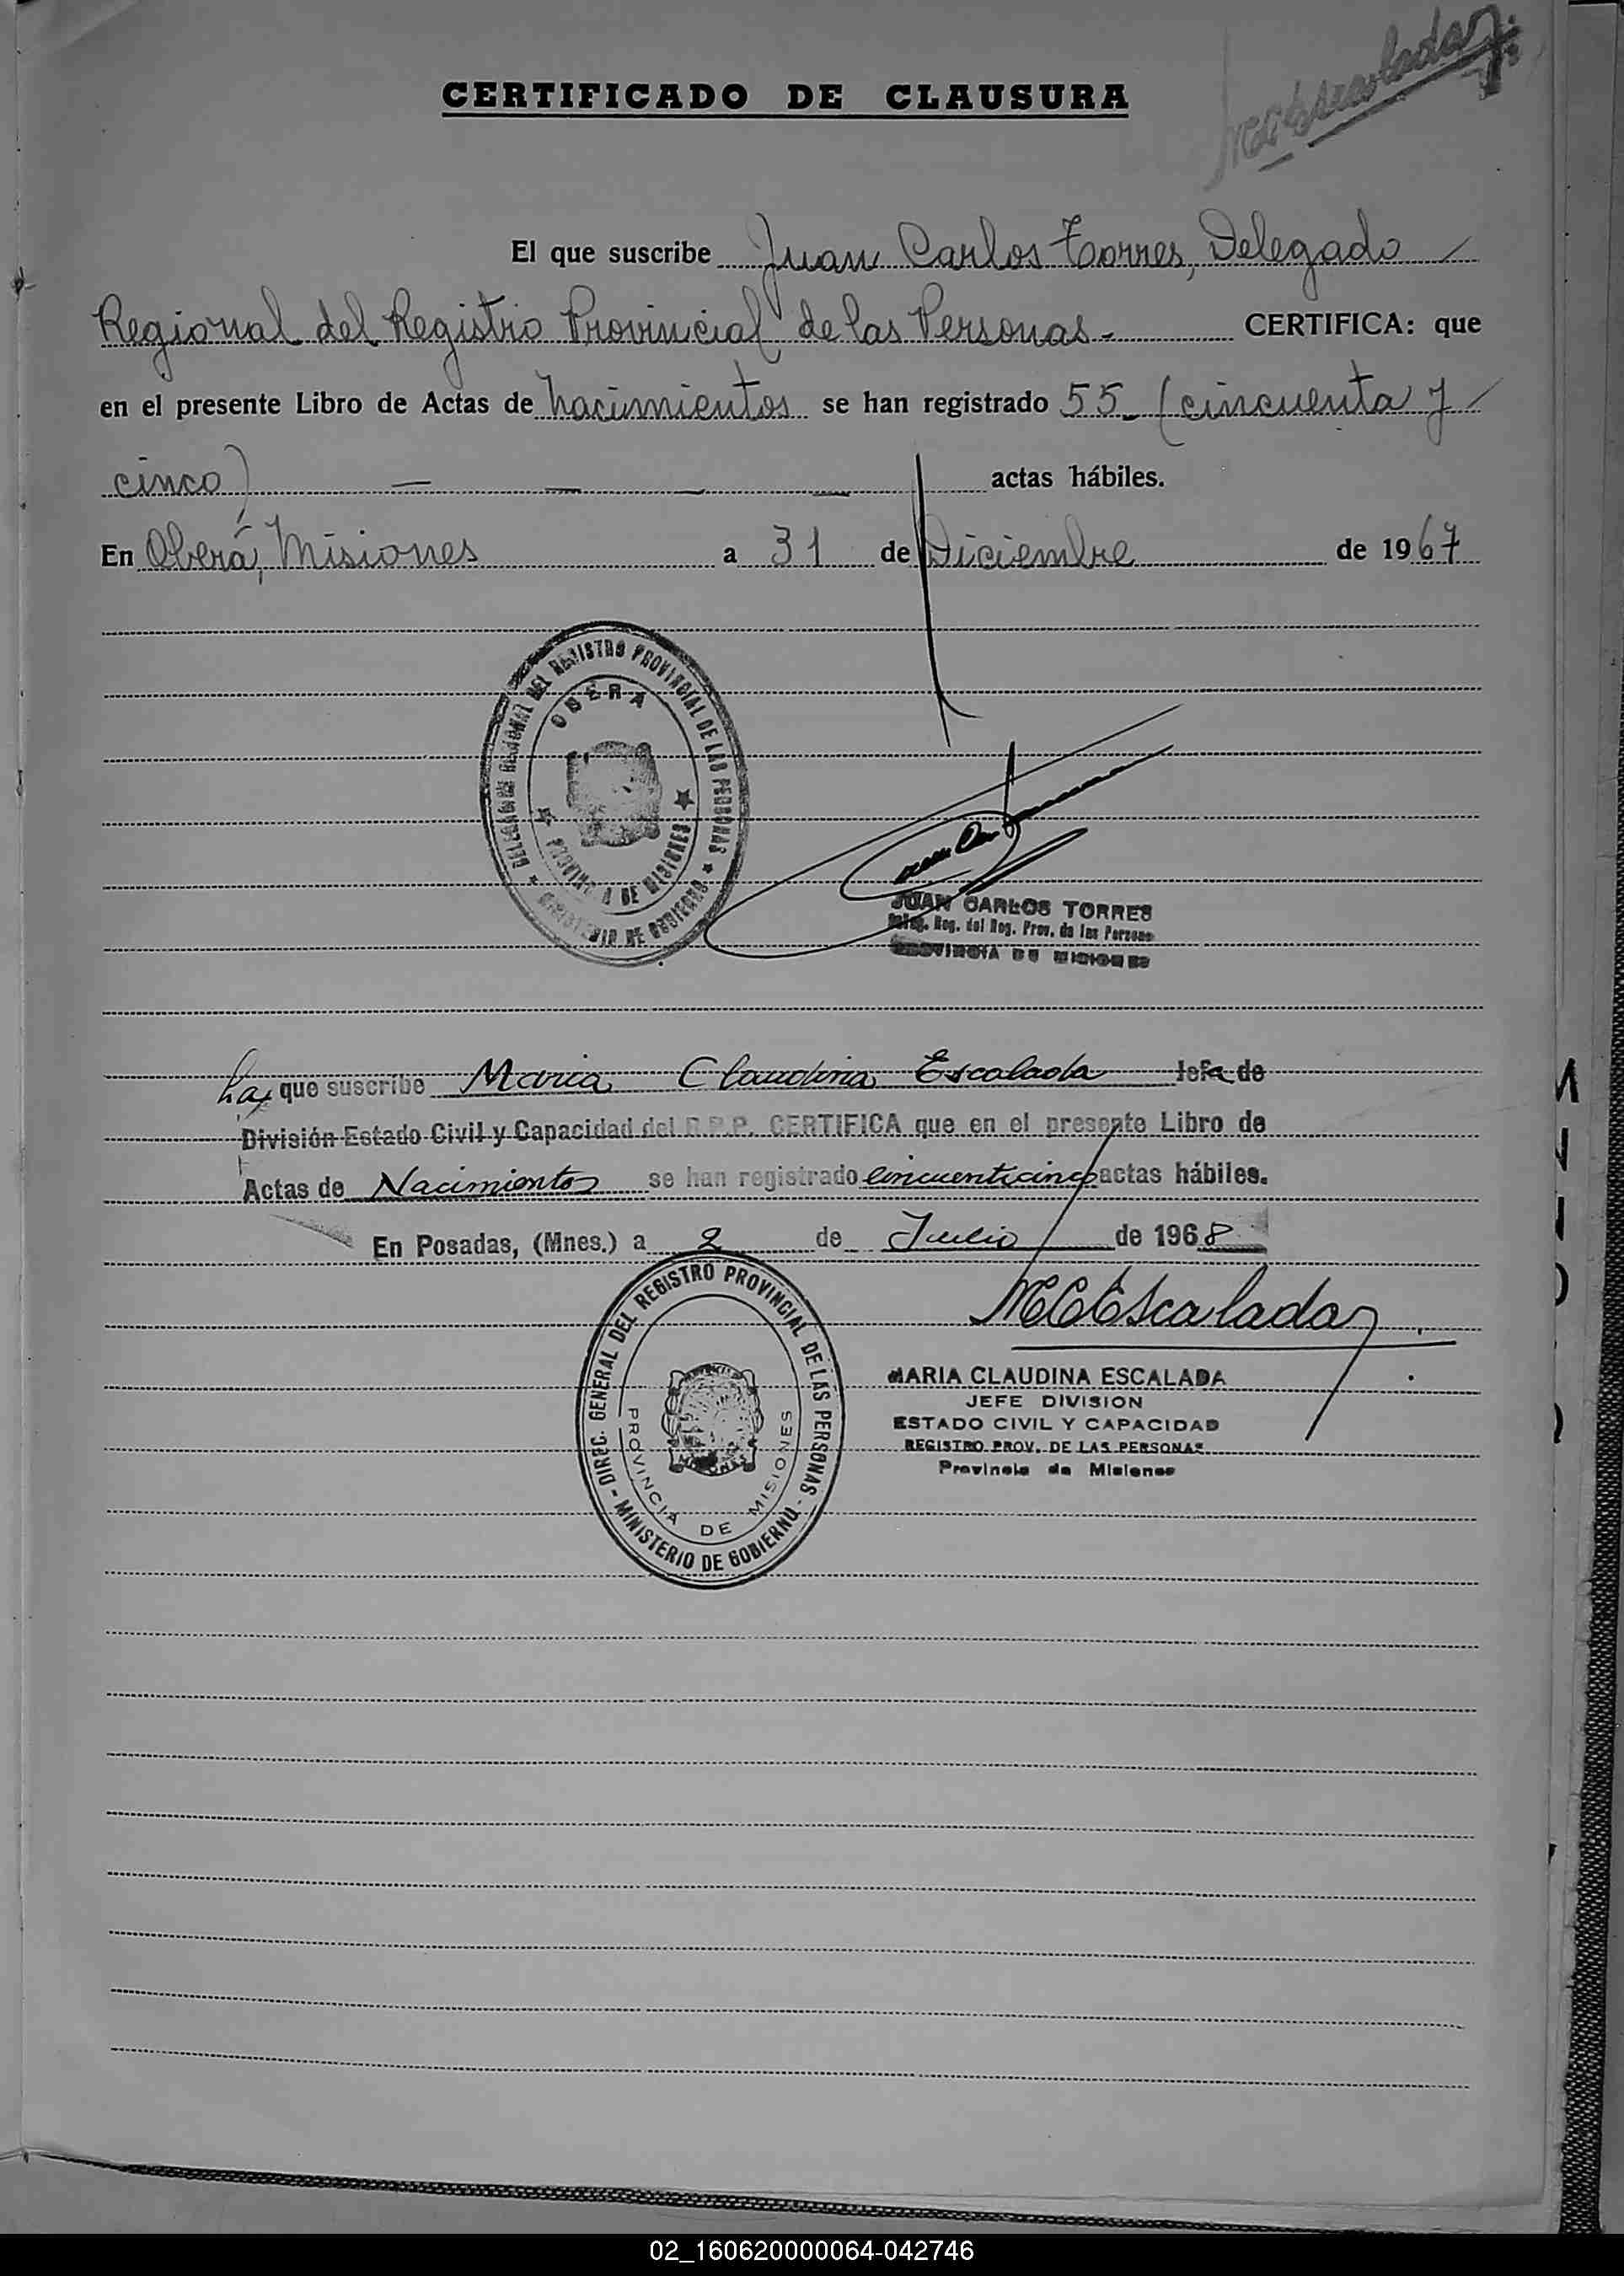 MCEscalada
CERTIFICADO DE CLAUSURA
El que suscribe Juan Carlos Torres, Delegado
Regional del Registro Provincial de las Personas.- CERTIFICA: que
en el presente Libro de Actas de Nacimientos se han registrado 55_ (cincuenta y
cinco) — — — — actas hábiles.
En Oberá, Misiones a 31 de Diciembre de 1967
DELEGACION REGIONAL DEL REGISTRO PROVINCIAL DE LAS PERSONAS
OBERA
PROVINCIA DE MISIONES
MINISTERIO DE GOBIERNO
JUAN CARLOS TORRES
Deleg. Reg. del Reg. Prov. de las Personas
PROVINCIA DE MISIONES
La que suscribe Maria Claudina Escalada Jefa de
División Estado Civil y Capacidad del R.P.P. CERTIFICA que en el presente Libro de
Actas de Nacimientos se han registrado cincuenticinco actas hábiles.
En Posadas, (Mnes.) a 2 de Julio de 1968
MCEscalada
DIREC. GENERAL DEL REGISTRO PROVINCIAL DE LAS PERSONAS - MINISTERIO DE GOBIERNO -
PROVINCIA DE MISIONES
MARIA CLAUDINA ESCALADA
JEFE DIVISION
ESTADO CIVIL Y CAPACIDAD
REGISTRO PROV. DE LAS PERSONAS
Provincia de Misiones
02_160620000064-042746